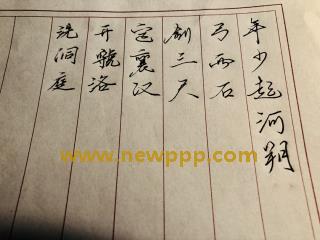 年少起河朔
弓两石
剑三尺
定襄汉
开虢洛
洗洞庭
www.newppp.com